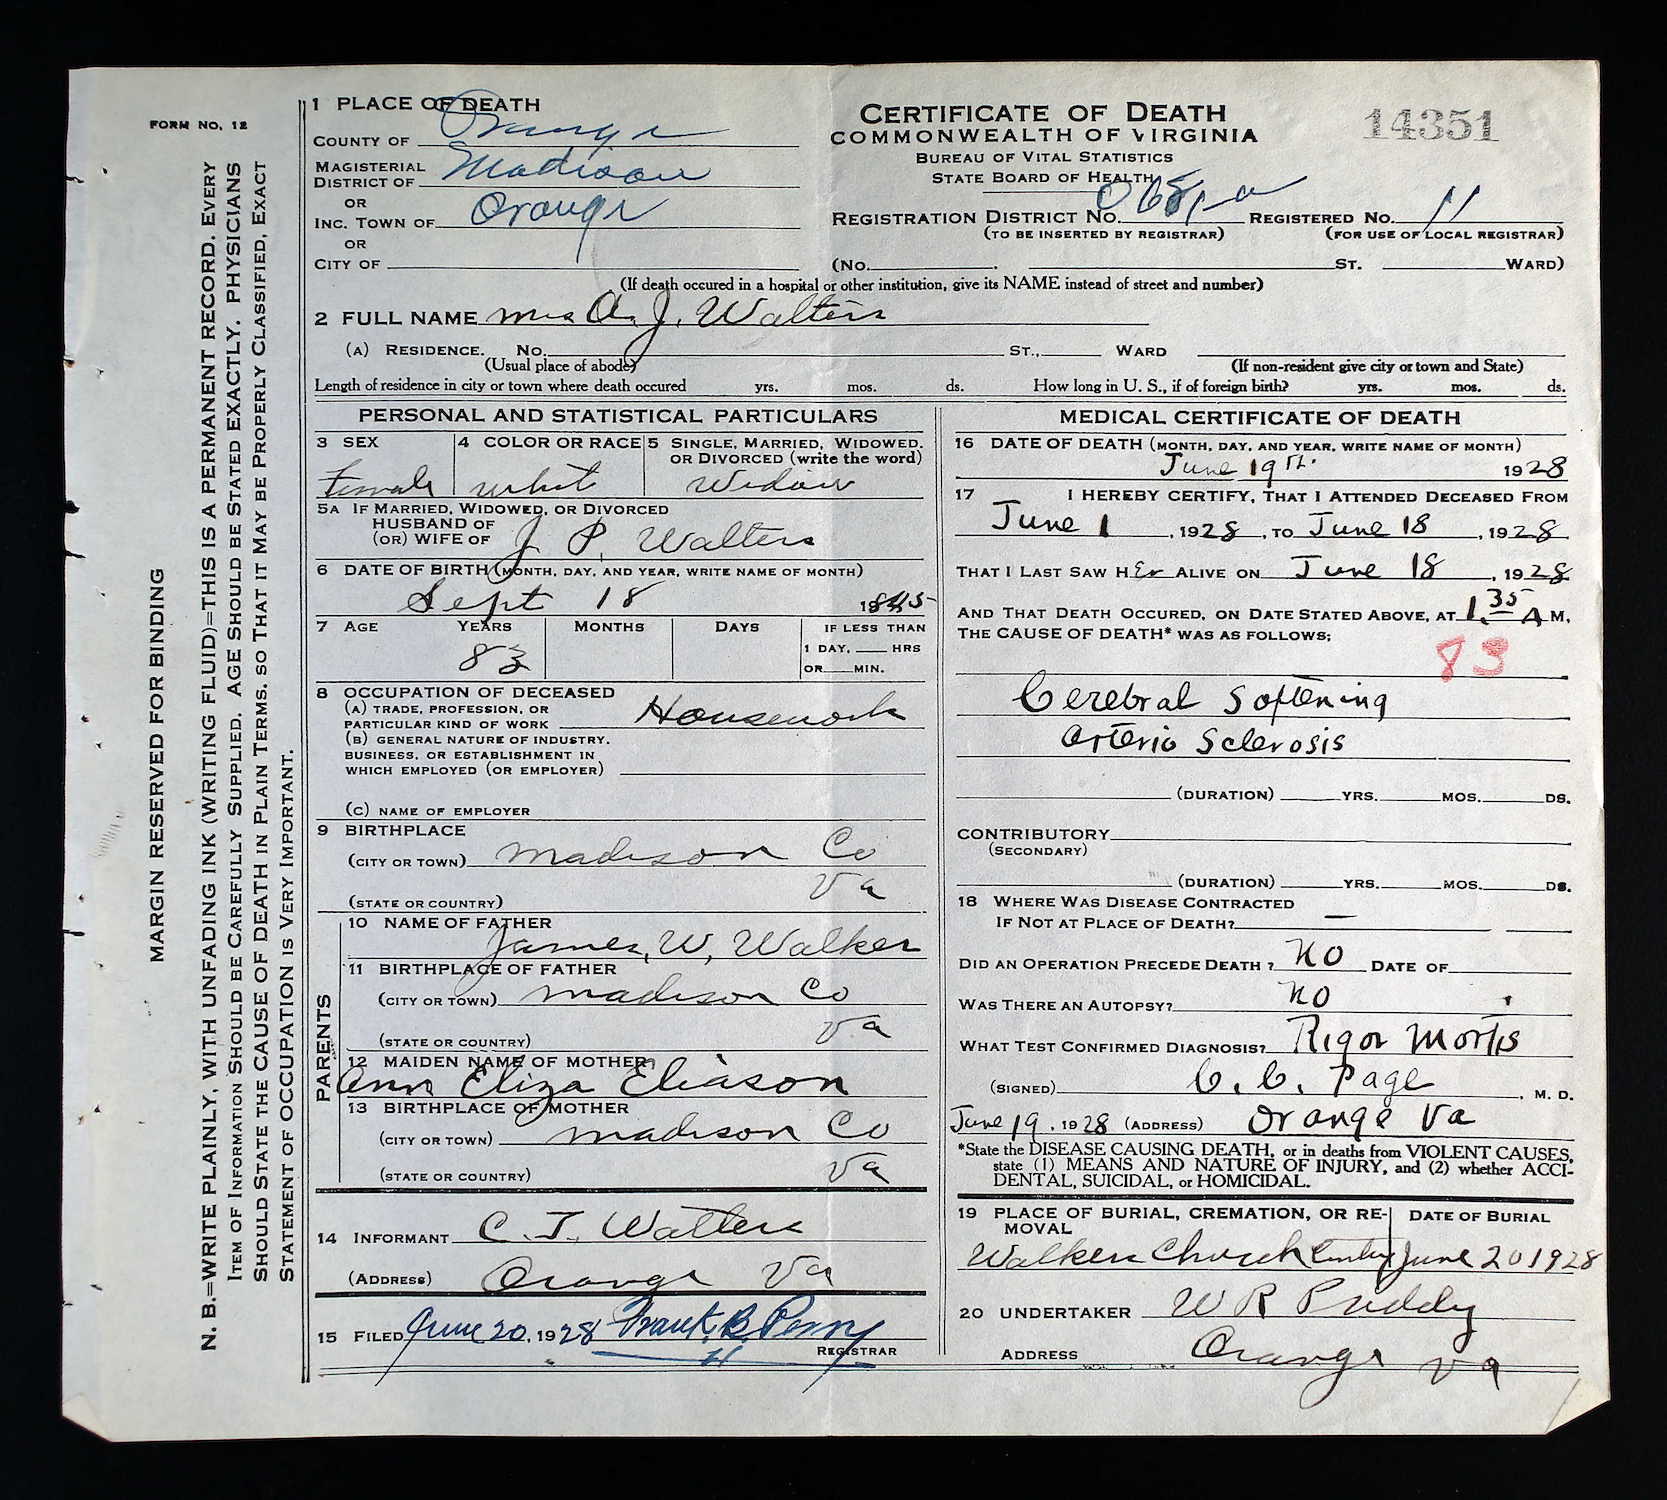 FORM NO. 12
MARGIN RESERVED FOR BINDING
N. B.=WRITE PLAINLY, WITH UNFADING INK (WRITING FLUID)=THIS IS A PERMANENT RECORD. EVERY
ITEM OF INFORMATION SHOULD BE CAREFULLY SUPPLIED. AGE SHOULD BE STATED EXACTLY. PHYSICIANS
SHOULD STATE THE CAUSE OF DEATH IN PLAIN TERMS. SO THAT IT MAY BE PROPERLY CLASSIFIED, EXACT
STATEMENT OF OCCUPATION IS VERY IMPORTANT.
1 PLACE OF DEATH
COUNTY OF Orange
MAGISTERIAL
DISTRICT OF Madison
OR
INC. TOWN OF Orange
OR
CITY OF
CERTIFICATE OF DEATH
COMMONWEALTH OF VIRGINIA
BUREAU OF VITAL STATISTICS
STATE BOARD OF HEALTH
14351
REGISTRATION DISTRICT NO. REGISTERED NO. 11
(TO BE INSERTED BY REGISTRAR) (FOR USE OF LOCAL REGISTRAR)
(NO. ST. WARD)
(If death occured in a hospital or other institution, give its NAME instead of street and number)
2 FULL NAME Mrs A. J. Walters
(A) RESIDENCE. NO. ST., WARD
(Usual place of abode) (If non-resident give city or town and State)
Length of residence in city or town where death occured yrs. mos. ds. How long in U. S., if of foreign birth? yrs. mos. ds.
PERSONAL AND STATISTICAL PARTICULARS
3 SEX 4 COLOR OR RACE 5 SINGLE, MARRIED, WIDOWED,
OR DIVORCED (write the word)
Female whit Widow
5A IF MARRIED, WIDOWED, OR DIVORCED
HUSBAND OF
(OR) WIFE OF J. P. Walters
6 DATE OF BIRTH (MONTH, DAY, AND YEAR, WRITE NAME OF MONTH)
Sept 18 1845
7 AGE YEARS MONTHS DAYS IF LESS THAN
1 DAY, HRS
83 OR MIN.
8 OCCUPATION OF DECEASED
(A) TRADE, PROFESSION, OR
PARTICULAR KIND OF WORK Housework
(B) GENERAL NATURE OF INDUSTRY,
BUSINESS, OR ESTABLISHMENT IN
WHICH EMPLOYED (OR EMPLOYER)
(C) NAME OF EMPLOYER
9 BIRTHPLACE
(CITY OR TOWN) Madison Co
(STATE OR COUNTRY) Va
PARENTS
10 NAME OF FATHER
James, W, Walker
11 BIRTHPLACE OF FATHER
(CITY OR TOWN) Madison Co
(STATE OR COUNTRY) Va
12 MAIDEN NAME OF MOTHER
Ann Eliza Eliason
13 BIRTHPLACE OF MOTHER
(CITY OR TOWN) Madison Co
(STATE OR COUNTRY) Va
14 INFORMANT C. J. Walters
(ADDRESS) Orange Va
15 FILED June 20, 1928 Frank. B. Perry
REGISTRAR
MEDICAL CERTIFICATE OF DEATH
16 DATE OF DEATH (MONTH, DAY, AND YEAR, WRITE NAME OF MONTH)
June 19th. 1928
17 I HEREBY CERTIFY, THAT I ATTENDED DECEASED FROM
June 1, 1928, TO June 18, 1928
THAT I LAST SAW HEr ALIVE ON June 18, 1928
AND THAT DEATH OCCURED, ON DATE STATED ABOVE, AT 1.35 A M.
THE CAUSE OF DEATH* WAS AS FOLLOWS;
83
Cerebral Softening
Arterio Sclerosis
(DURATION) YRS. MOS. DS.
CONTRIBUTORY
(SECONDARY)
(DURATION) YRS. MOS. DS.
18 WHERE WAS DISEASE CONTRACTED
IF NOT AT PLACE OF DEATH? —
DID AN OPERATION PRECEDE DEATH? NO DATE OF
WAS THERE AN AUTOPSY? NO
WHAT TEST CONFIRMED DIAGNOSIS? Rigor Mortis
(SIGNED) C. C. Page, M. D.
June 19, 1928 (ADDRESS) Orange Va
*State the DISEASE CAUSING DEATH, or in deaths from VIOLENT CAUSES,
state (1) MEANS AND NATURE OF INJURY, and (2) whether ACCI-
DENTAL, SUICIDAL, or HOMICIDAL.
19 PLACE OF BURIAL, CREMATION, OR RE- DATE OF BURIAL
MOVAL
Walkers Church June 20 1928
20 UNDERTAKER W R Priddy
ADDRESS Orange Va